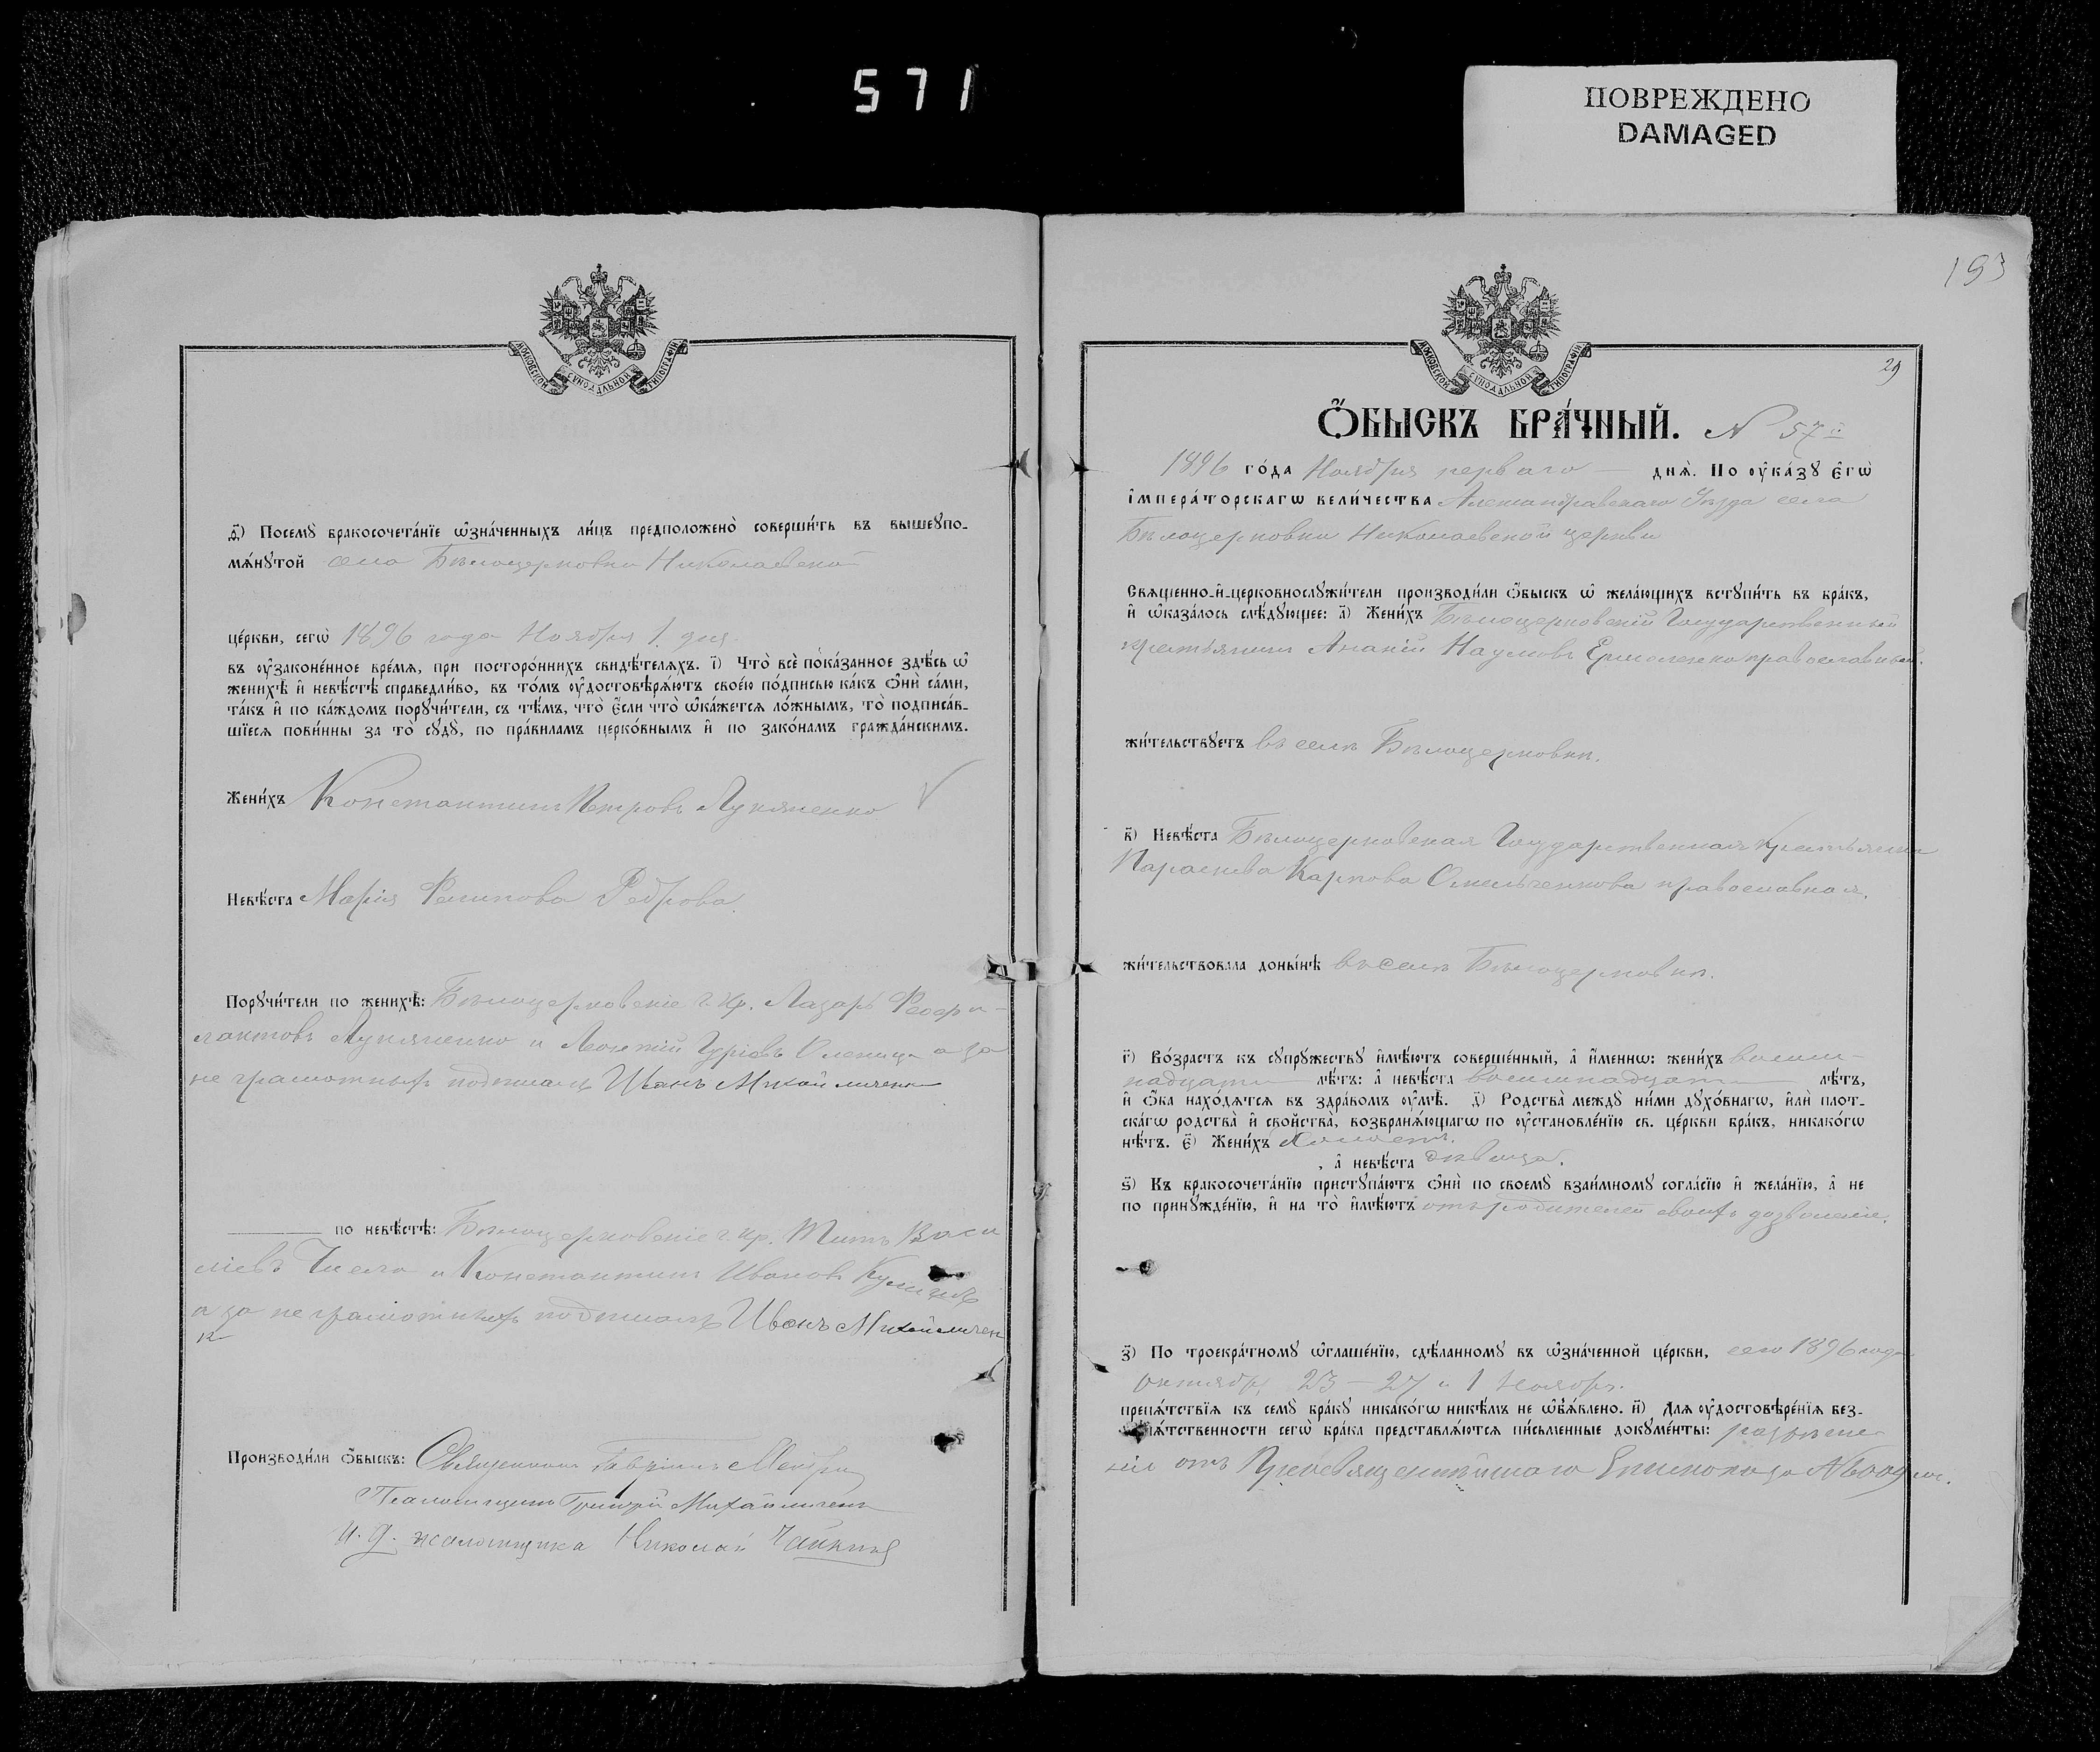 571
ПОВРЕЖДЕНО
DAMAGED
МОСКОВСКОЙ СѴНОДАЛЬНОЙ ТИПОГРАФІИ
ѳ҃) Посемꙋ̀ бракосочета́нїе ѡ҆зна́ченныхъ ли́цъ предположено̀ соверши́ть въ вышеꙋпо-
мѧ́нꙋтой села Бѣлоцерковки Николаевской
це́ркви, сегѡ̀ 1896 года Ноября 1. дня
въ ᲂу҆законе́нное вре́мѧ, при посторо́ннихъ свидѣ́телѧхъ. і҃) Что̀ всѐ пока́занное здѣ́сь ѡ҆
женихѣ̀ и҆ невѣ́стѣ справедли́во, въ то́мъ ᲂу҆достовѣрѧ́ютъ свое́ю по́дписью ка́къ ѻ҆нѝ са́ми,
та́къ и҆ по ка́ждомъ порꙋчи́тели, съ тѣ́мъ, что̀ є҆́сли что̀ ѡ҆ка́жетсѧ ло́жнымъ, то̀ подписа́в-
шїесѧ пови́нны за то̀ сꙋдꙋ̀, по пра́виламъ церко́внымъ и҆ по зако́намъ гражда́нскимъ.
Жени́хъ Константинъ Петровъ Лукяненко
Невѣ́ста Марія Филипова Редрова.
Порꙋчи́тели по женихѣ̀: Бѣлоцерковскіе г. кр. Лазарь Феофи-
лактовъ Лукяненко и Леонтій Гуріевъ а за
не грамотныхъ подписалъ Иванъ Михайличенко
по невѣ́стѣ: Бѣлоцерковскіе г. кр. Титъ Васи
ліевъ и Константинъ Ивановъ
а за не грамотныхъ подписалъ Иванъ Михайличен
к
Производи́ли ѻ҆́быскъ: Священникъ
Псаломщикъ Григорій Михайличенко
И. д. псаломщика Николай Чайкинъ
193
МОСКОВСКОЙ СѴНОДАЛЬНОЙ ТИПОГРАФІИ
29
Ѻ҆́БЫСКЪ БРА́ЧНЫЙ. N 57й
1896 го́да Ноября перваго — днѧ̀. По ᲂу҆ка́зꙋ є҆гѡ̀
і҆мпера́торскагѡ вели́чества Александровскаго Уѣзда села
Бѣлоцерковки Николаевской церкви
Свѧщенно-и҆-церковнослꙋжи́тели производи́ли ѻ҆́быскъ ѡ҆ жела́ющихъ встꙋпи́ть въ бра́къ,
и҆ ѡ҆каза́лось слѣ́дꙋющее: а҃) Жени́хъ Бѣлоцерковскій Государственный
крестьянинъ Ананій Наумовъ Ермоленко православный.
жи́тельствꙋетъ въ селѣ Бѣлоцерковки.
в҃) Невѣ́ста Бѣлоцерковская Государственная Крестьянка
Параскева Карпова Омельченкова православная.
жи́тельствовала доны́нѣ въ селѣ Бѣлоцерковки.
г҃) Во́зрастъ къ сꙋпрꙋ́жествꙋ и҆мѣ́ютъ соверше́нный, а҆ и҆́меннѡ: жени́хъ восем-
надцати — лѣ́тъ: а҆ невѣ́ста восемнадцати — лѣ́тъ,
и҆ ѻ҆́ба нахо́дѧтсѧ въ здра́вомъ ᲂу҆мѣ̀. д҃) Родства̀ междꙋ̀ ни́ми дꙋхо́внагѡ, и҆лѝ плот-
ска́гѡ родства̀ и҆ сво́йства, возвранѧ́ющагѡ по ᲂу҆становле́нїю св. це́ркви бра́къ, никако́гѡ
нѣ́тъ. є҃) Жени́хъ Холостъ.
, а҆ невѣ́ста дѣвица.
ѕ҃) Къ бракосочета́нїю пристꙋпа́ютъ ѻ҆нѝ по своемꙋ̀ взаи́мномꙋ согла́сїю и҆ жела́нїю, а҆ не
по принꙋжде́нїю, и҆ на то̀ и҆мѣ́ютъ отъ родителей своихъ дозволеніе.
з҃) По троекра́тномꙋ ѡ҆глаше́нїю, сдѣ́ланномꙋ въ ѡ҆зна́ченной це́ркви, сего 1896 года
октября 23 — 27 и 1 Ноября.
препѧ́тствїѧ къ семꙋ̀ бра́кꙋ никако́гѡ никѣ́мъ не ѡ҆б̾ѧ́влено. и҃) Длѧ ᲂу҆достовѣре́нїѧ без-
пѧ́тственности сегѡ̀ бра́ка представлѧ́ютсѧ пи́сьменные докꙋме́нты: разрѣше-
ніе отъ Преосвященнѣйшаго Епископа за №